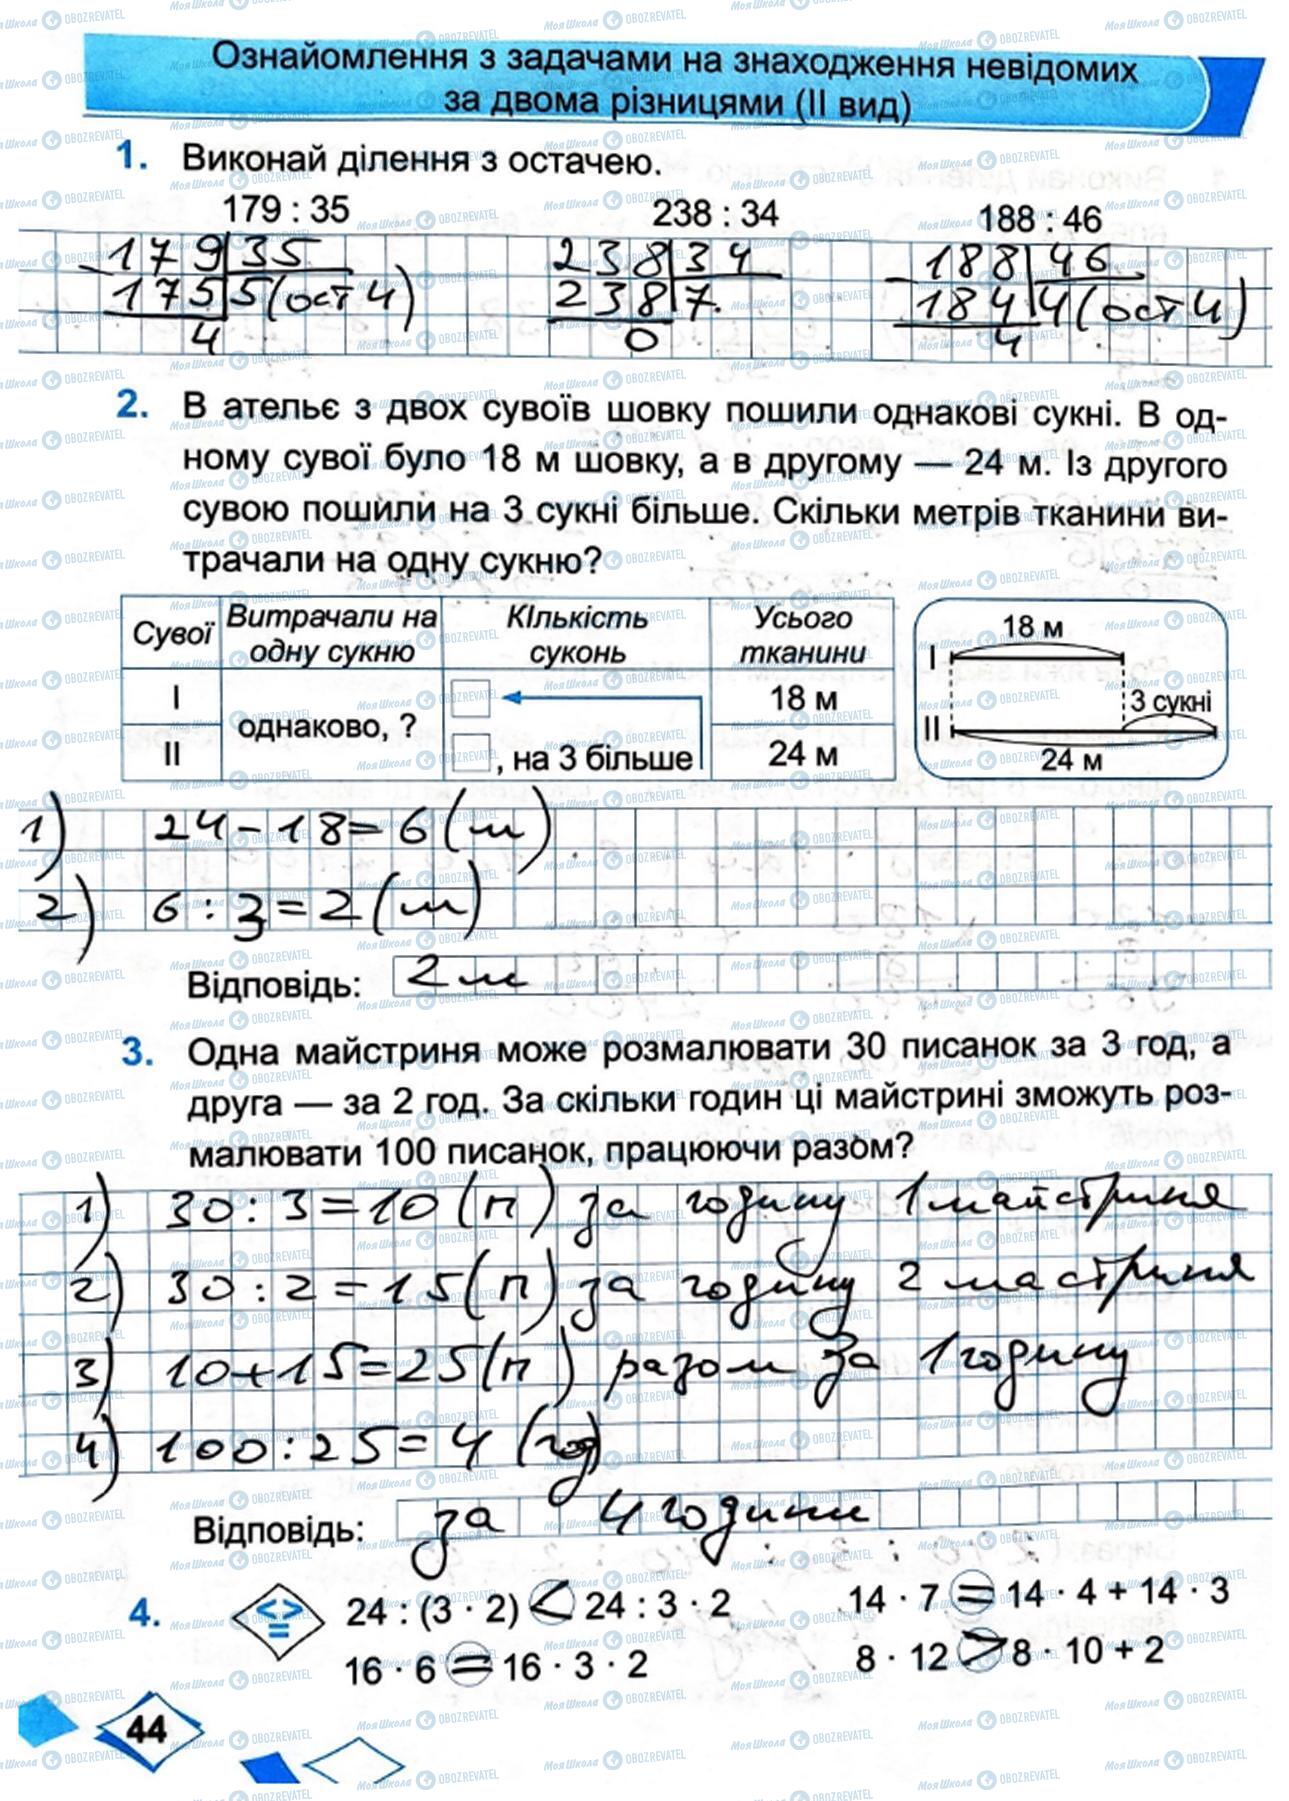 Ознайомлення з задачами на знаходження невідомих
за двома різницями (ІІ вид)
1. Виконай ділення з остачею.
179 : 35 238 : 34 188 : 46
179 35 238 34 188 46
175 5 (ост 4) 238 7 184 4 (ост 4)
4 0 4
2. В ательє з двох сувоїв шовку пошили однакові сукні. В од-
ному сувої було 18 м шовку, а в другому — 24 м. Із другого
сувою пошили на 3 сукні більше. Скільки метрів тканини ви-
трачали на одну сукню?
Сувої Витрачали на одну сукню Кількість суконь Усього тканини
І однаково, ? 18 м
ІІ , на 3 більше 24 м
18 м
І
3 сукні
ІІ
24 м
1) 24 - 18 = 6 (м)
2) 6 : 3 = 2 (м)
Відповідь: 2 м
3. Одна майстриня може розмалювати 30 писанок за 3 год, а
друга — за 2 год. За скільки годин ці майстрині зможуть роз-
малювати 100 писанок, працюючи разом?
1) 30 : 3 = 10 (п) за годину 1 майстриня
2) 30 : 2 = 15 (п) за годину 2 мастриня
3) 10 + 15 = 25 (п) разом за 1 годину
4) 100 : 25 = 4 (год)
Відповідь: за 4 години
4. < > = 24 : (3 · 2) < 24 : 3 · 2 14 · 7 = 14 · 4 + 14 · 3
16 · 6 = 16 · 3 · 2 8 · 12 > 8 · 10 + 2
44
МояШкола OBOZREVATEL